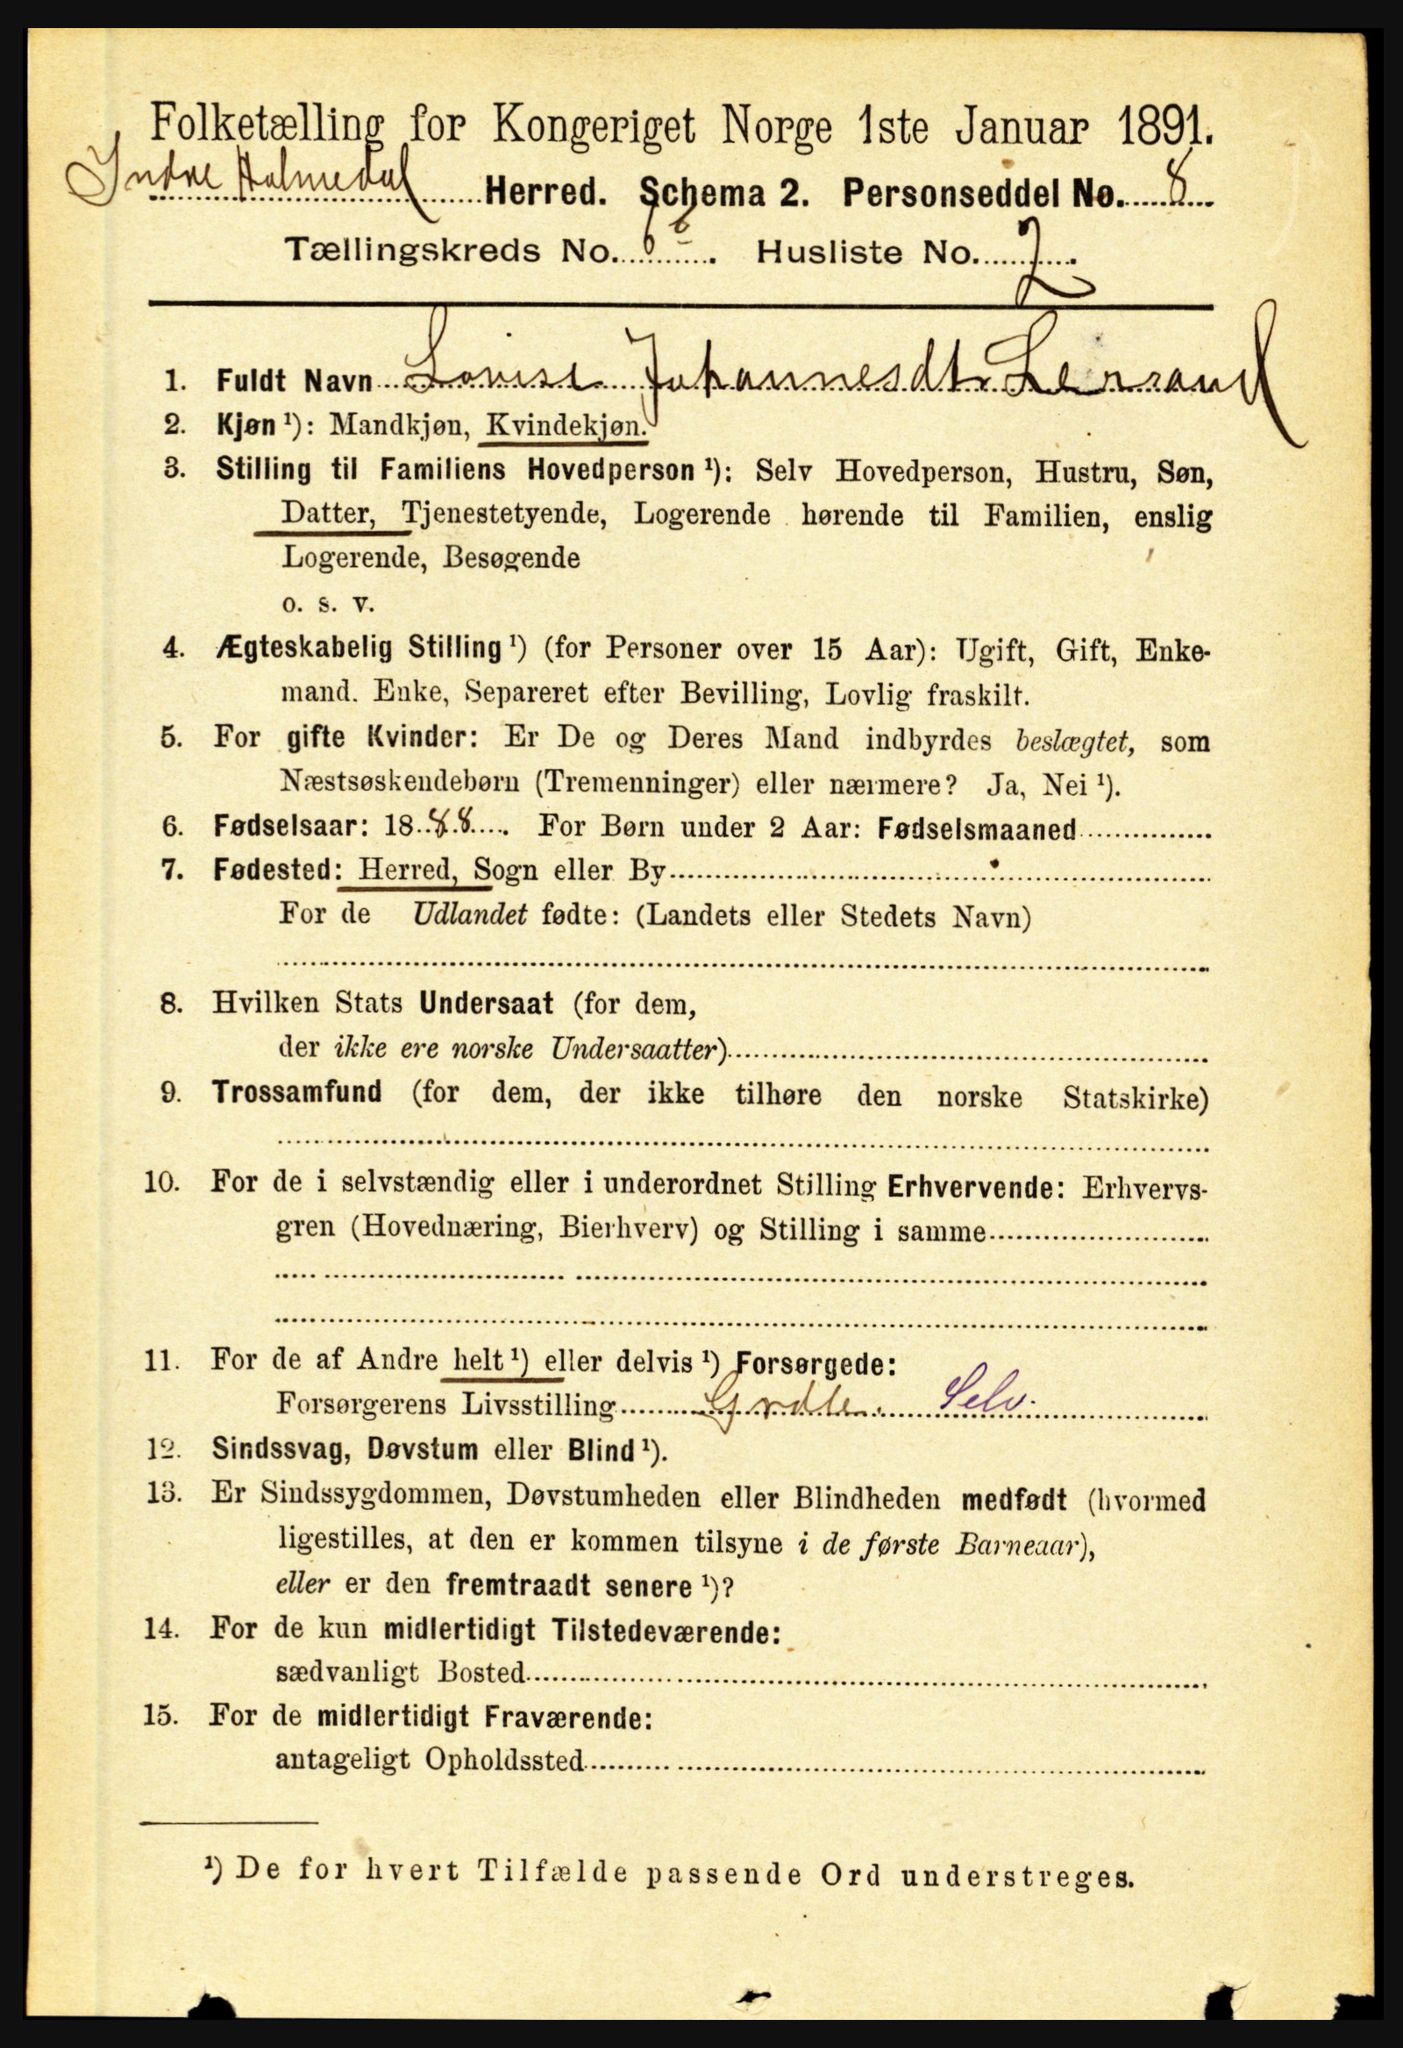 Folketælling for Kongeriget Norge 1ste Januar 1891.
Indre Holmedal Herred. Schema 2. Personseddel No. 8
Tællingskreds No. Husliste No. 2
1. Fuldt Navn Lovise Johannesdt.
2. Kjøn ¹): Mandkjøn, Kvindekjøn.
3. Stilling til Familiens Hovedperson ¹): Selv Hovedperson, Hustru, Søn,
Datter, Tjenestetyende, Logerende hørende til Familien, enslig
Logerende, Besøgende
o. s. v.
4. Ægteskabelig Stilling ¹) (for Personer over 15 Aar): Ugift, Gift, Enke-
mand. Enke, Separeret efter Bevilling, Lovlig fraskilt.
5. For gifte Kvinder: Er De og Deres Mand indbyrdes beslægtet, som
Næstsøskendebørn (Tremenninger) eller nærmere? Ja, Nei ¹).
6. Fødselsaar: 1888. For Børn under 2 Aar: Fødselsmaaned
7. Fødested: Herred, Sogn eller By
For de Udlandet fødte: (Landets eller Stedets Navn)
8. Hvilken Stats Undersaat (for dem,
der ikke ere norske Undersaatter)
9. Trossamfund (for dem, der ikke tilhøre den norske Statskirke)
10. For de i selvstændig eller i underordnet Stilling Erhvervende: Erhvervs-
gren (Hovednæring, Bierhverv) og Stilling i samme
11. For de af Andre helt ¹) eller delvis ¹) Forsørgede:
Forsørgerens Livsstilling Grdbr. Selv.
12. Sindssvag, Døvstum eller Blind ¹).
13. Er Sindssygdommen, Døvstumheden eller Blindheden medfødt (hvormed
ligestilles, at den er kommen tilsyne i de første Barneaar),
eller er den fremtraadt senere ¹)?
14. For de kun midlertidigt Tilstedeværende:
sædvanligt Bosted
15. For de midlertidigt Fraværende:
antageligt Opholdssted
¹) De for hvert Tilfælde passende Ord understreges.